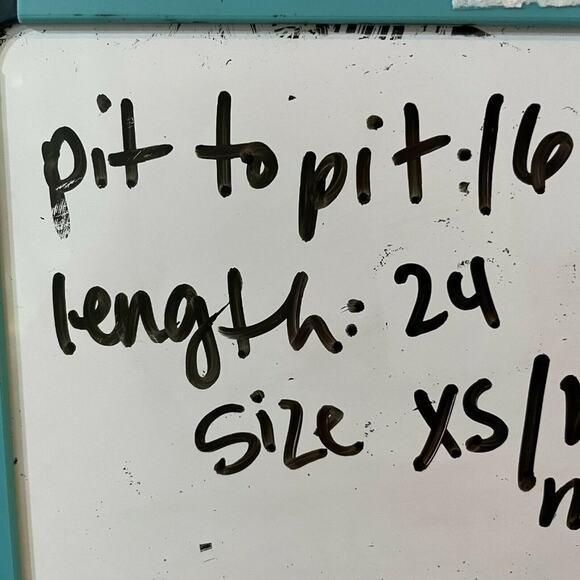 pit to pit: 16
length: 24
size XS/